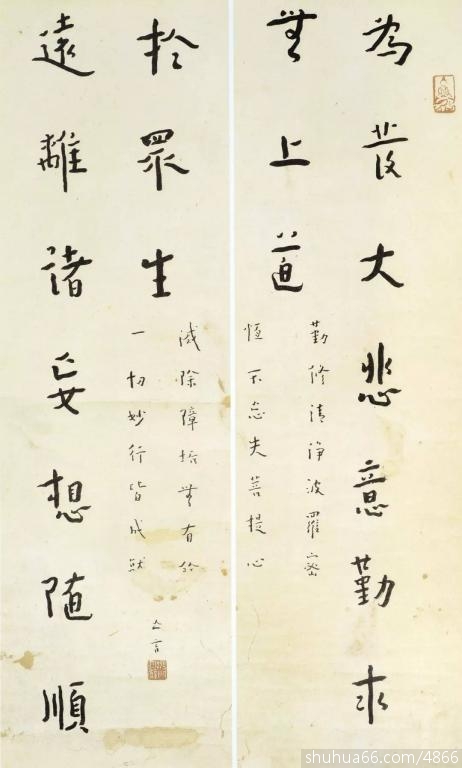 為發大悲意勤求
無上道
勤修清淨波羅密
恒不忘失菩提心
遠離諸妄想隨順
於眾生
滅除障垢無有餘
一切妙行皆成就
亡言
shuhua66.com/4866